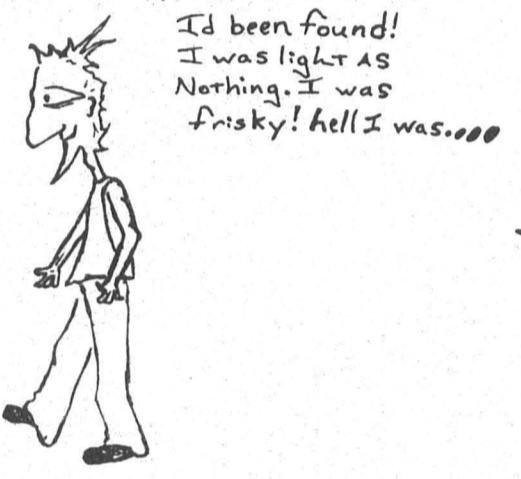 Id been found!
I was light AS
Nothing. I was
frisky! hell I was....